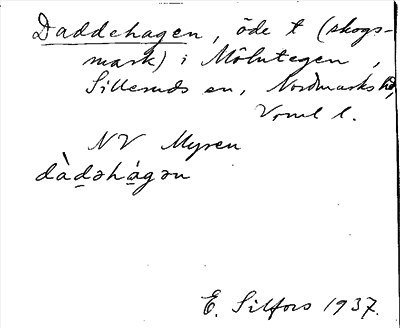 Daddehagen, öde t (skogs-
mark) i Mölntegen,
Silleruds sn, Nordmarks hd,
Vrml l.
NV Myren
dàdəhágən
E. Silfors 1937.